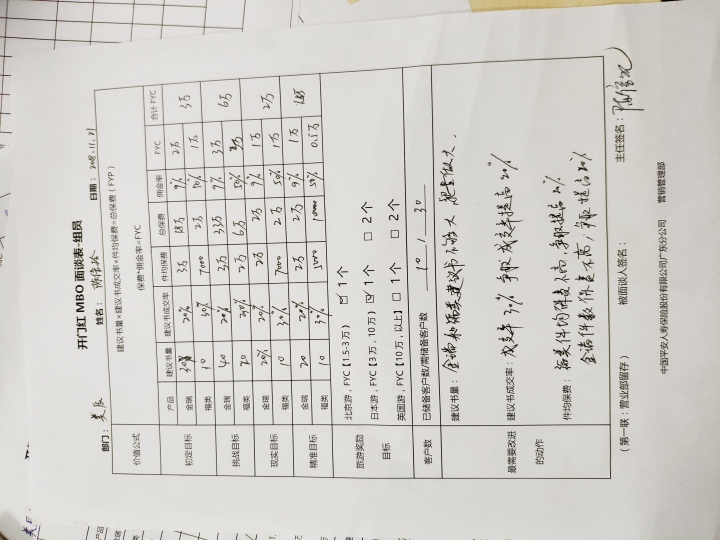 开门红 MBO 面谈表-组员
部门：美辰 姓名： 日期：2018.11.21
价值公式 建议书量×建议书成交率×件均保费=总保费（FYP）
保费*佣金率=FYC
产品 建议书量 建议书成交率 件均保费 总保费 佣金率 FYC 合计 FYC
初定目标 金瑞 20% 3万 18万 9% 2万 3万
福类 10 30% 7000 2万 50% 1万
挑战目标 金瑞 40 20% 3万 33万 9% 3万 6万
福类 20 30% 2万 6万 50% 3万
现实目标 金瑞 20% 20% 2万 2万 9% 1万 2万
福类 10 30% 7000 2万 50% 1万
精准目标 金瑞 20 20% 2万 2万 9% 1万 1.5万
福类 10 30% 5000 10000 50% 0.5万
旅游奖励
目标
北京游，FYC【1.5-3 万） ☑ 1 个
日本游，FYC【3 万，10 万） ☑ 1 个 □ 2 个
英国游，FYC【10 万，以上】 □ 1 个 □ 2 个
客户数 已储备客户数/需储备客户数 10 / 30
最需要改进
的动作
建议书量：金瑞和福类建议书不够大，尽量做大.
建议书成交率：成交率30%争取成交率提高20%
件均保费：福类件均保费不高，争取提高20%
金瑞件数保费不高，争取提高20%
（第一联：营业部留存） 被面谈人签名： 主任签名：
中国平安人寿保险股份有限公司广东分公司 营销管理部